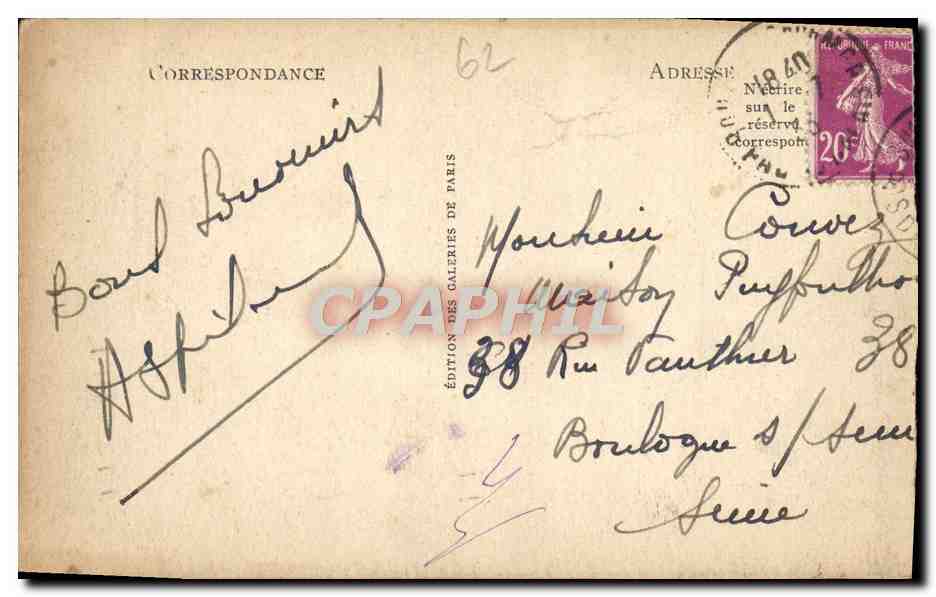 62
CORRESPONDANCE
ADRESSE
N'écrire
sur le
réservé
correspon
REPUBLIQUE FRANC
20c
18 40
PAS D
Bons Souvenirs
ÉDITION DES GALERIES DE PARIS
CPAPHIL
Monsieur
Maison
38 Rue Pauthier 38
Boulogne s/ Seine
Seine